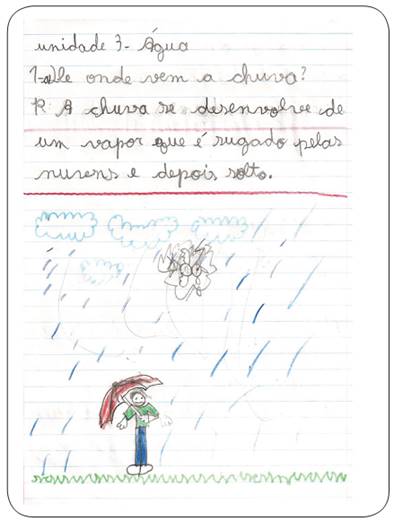 unidade 3 - Água
1-a) De onde vem a chuva?
R A chuva se desenvolve de
um vapor que é sugado pelas
nuvens e depois solto.